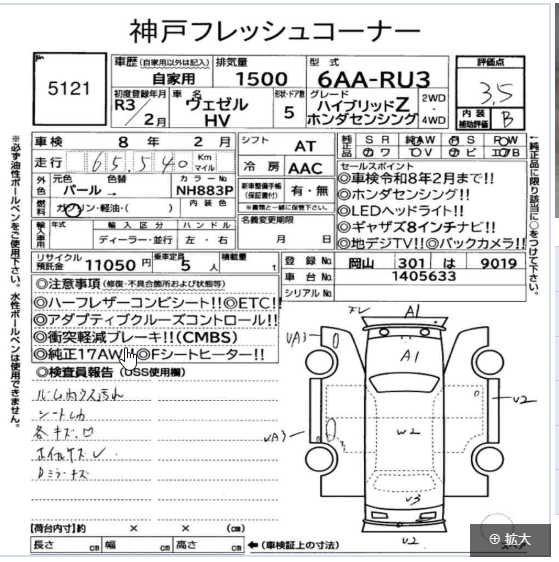 神戸フレッシュコーナー
5121
車歴 (自家用以外は記入)
自家用
排気量
1500
型式
6AA-RU3
評価点
3.5
内装
補助評価
B
初度登録年月
R3/2月
車名
ヴェゼル
HV
形状・ドア数
5
グレード
ハイブリッドZ
ホンダセンシング
2WD
4WD
車検 8年 2月
走行 65,540 Km マイル
シフト AT
冷房 AAC
純正品 SR 純AW PS PW
カワ TV ナビ エアB
外色 元色 色替 カラーNo
パール→ NH883P
燃料 ガソリン・軽油・( ) 内装色
新車整備手帳
(保証書付)
有・無
※書類と一緒に保管下さい。
名義変更期限
月 日
輸入車用 年式 輸入区分 ハンドル
ディーラー・並行 左・右
セールスポイント
◎車検令和8年2月まで!!
◎ホンダセンシング!!
◎LEDヘッドライト!!
◎ギャザズ8インチナビ!!
◎地デジTV!!◎バックカメラ!!
リサイクル
預託金 11050円
乗車定員 5人
積載量 t
登録No 岡山 301 は 9019
車台No 1405633
シリアルNo
◎注意事項 (修復・不具合箇所および状態等)
◎ハーフレザーコンビシート!!◎ETC!!
◎アダプティブクルーズコントロール!!
◎衝突軽減ブレーキ!!(CMBS)
◎純正17AW!!◎Fシートヒーター!!
◎検査員報告 (USS使用欄)
ルームカウス汚れ
各キズ、凹
Dミラーキズ
A1
UA3
A1
U2
UA3
W2
U3
U2
スペア
【荷台内寸】約 × × (cm)
長さ cm 幅 cm 高さ cm ←(車検証上の寸法)
※必ず油性ボールペンをご使用下さい。水性ボールペンは使用できません。
←純正品に限り該当に○をつけて下さい。
⊕ 拡大